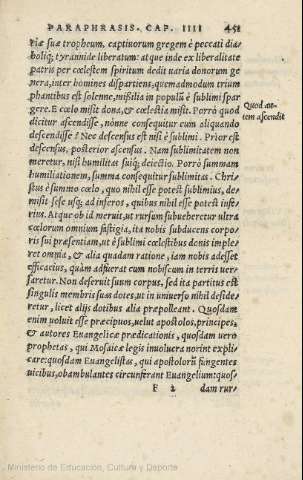 PARAPHRASIS. CAP. IIII 451
riæ suæ tropheum, captiuorum gregem è peccati dia-
boliq; tyrannide liberatum: atque inde ex liberalitate
patris per cœlestem spiritum dedit uaria donorum ge
nera, inter homines dispartiens, quemadmodum trium
phantibus est solenne, missilia in populũ è sublimi spar
gere. E cœlo misit dona, & cœlestia misit. Porrò quod
dicitur ascendisse, nónne consequitur eum aliquando
descendisse? Nec descensus est nisi è sublimi. Prior est
descensus, posterior ascensus. Nam sublimitatem non
meretur, nisi humilitas suiq; deiectio. Porrò summam
humiliationem, summa consequitur sublimitas. Chri-
stus è summo cœlo, quo nihil esse potest sublimius, de-
misit sese usq; ad inferos, quibus nihil esse potest infe-
rius. Atque ob id meruit, ut rursum subueheretur ultra
cœlorum omnium fastigia, ita nobis subducens corpo-
ris sui præsentiam, ut è sublimi cœlestibus donis imple-
ret omnia, & alia quadam ratione, iam nobis adesset
efficacius, quàm adfuerat cum nobiscum in terris uer-
saretur. Non deseruit suum corpus, sed ita partitus est
singulis membris suas dotes, ut in uniuerso nihil deside-
retur, licet alijs dotibus alia præpolleant. Quosdam
enim uoluit esse præcipuos, uelut apostolos, principes,
& autores Euangelicæ prædicationis, quosdam uero
prophetas, qui Mosaicæ legis inuolucra norint expli-
care: quosdam Euangelistas, qui apostolorũ fungentes
uicibus, obambulantes circunferant Euangelium: quos-
F 2 dam rur-
Quod au-
tem ascendit
Ministerio de Educación, Cultura y Deporte